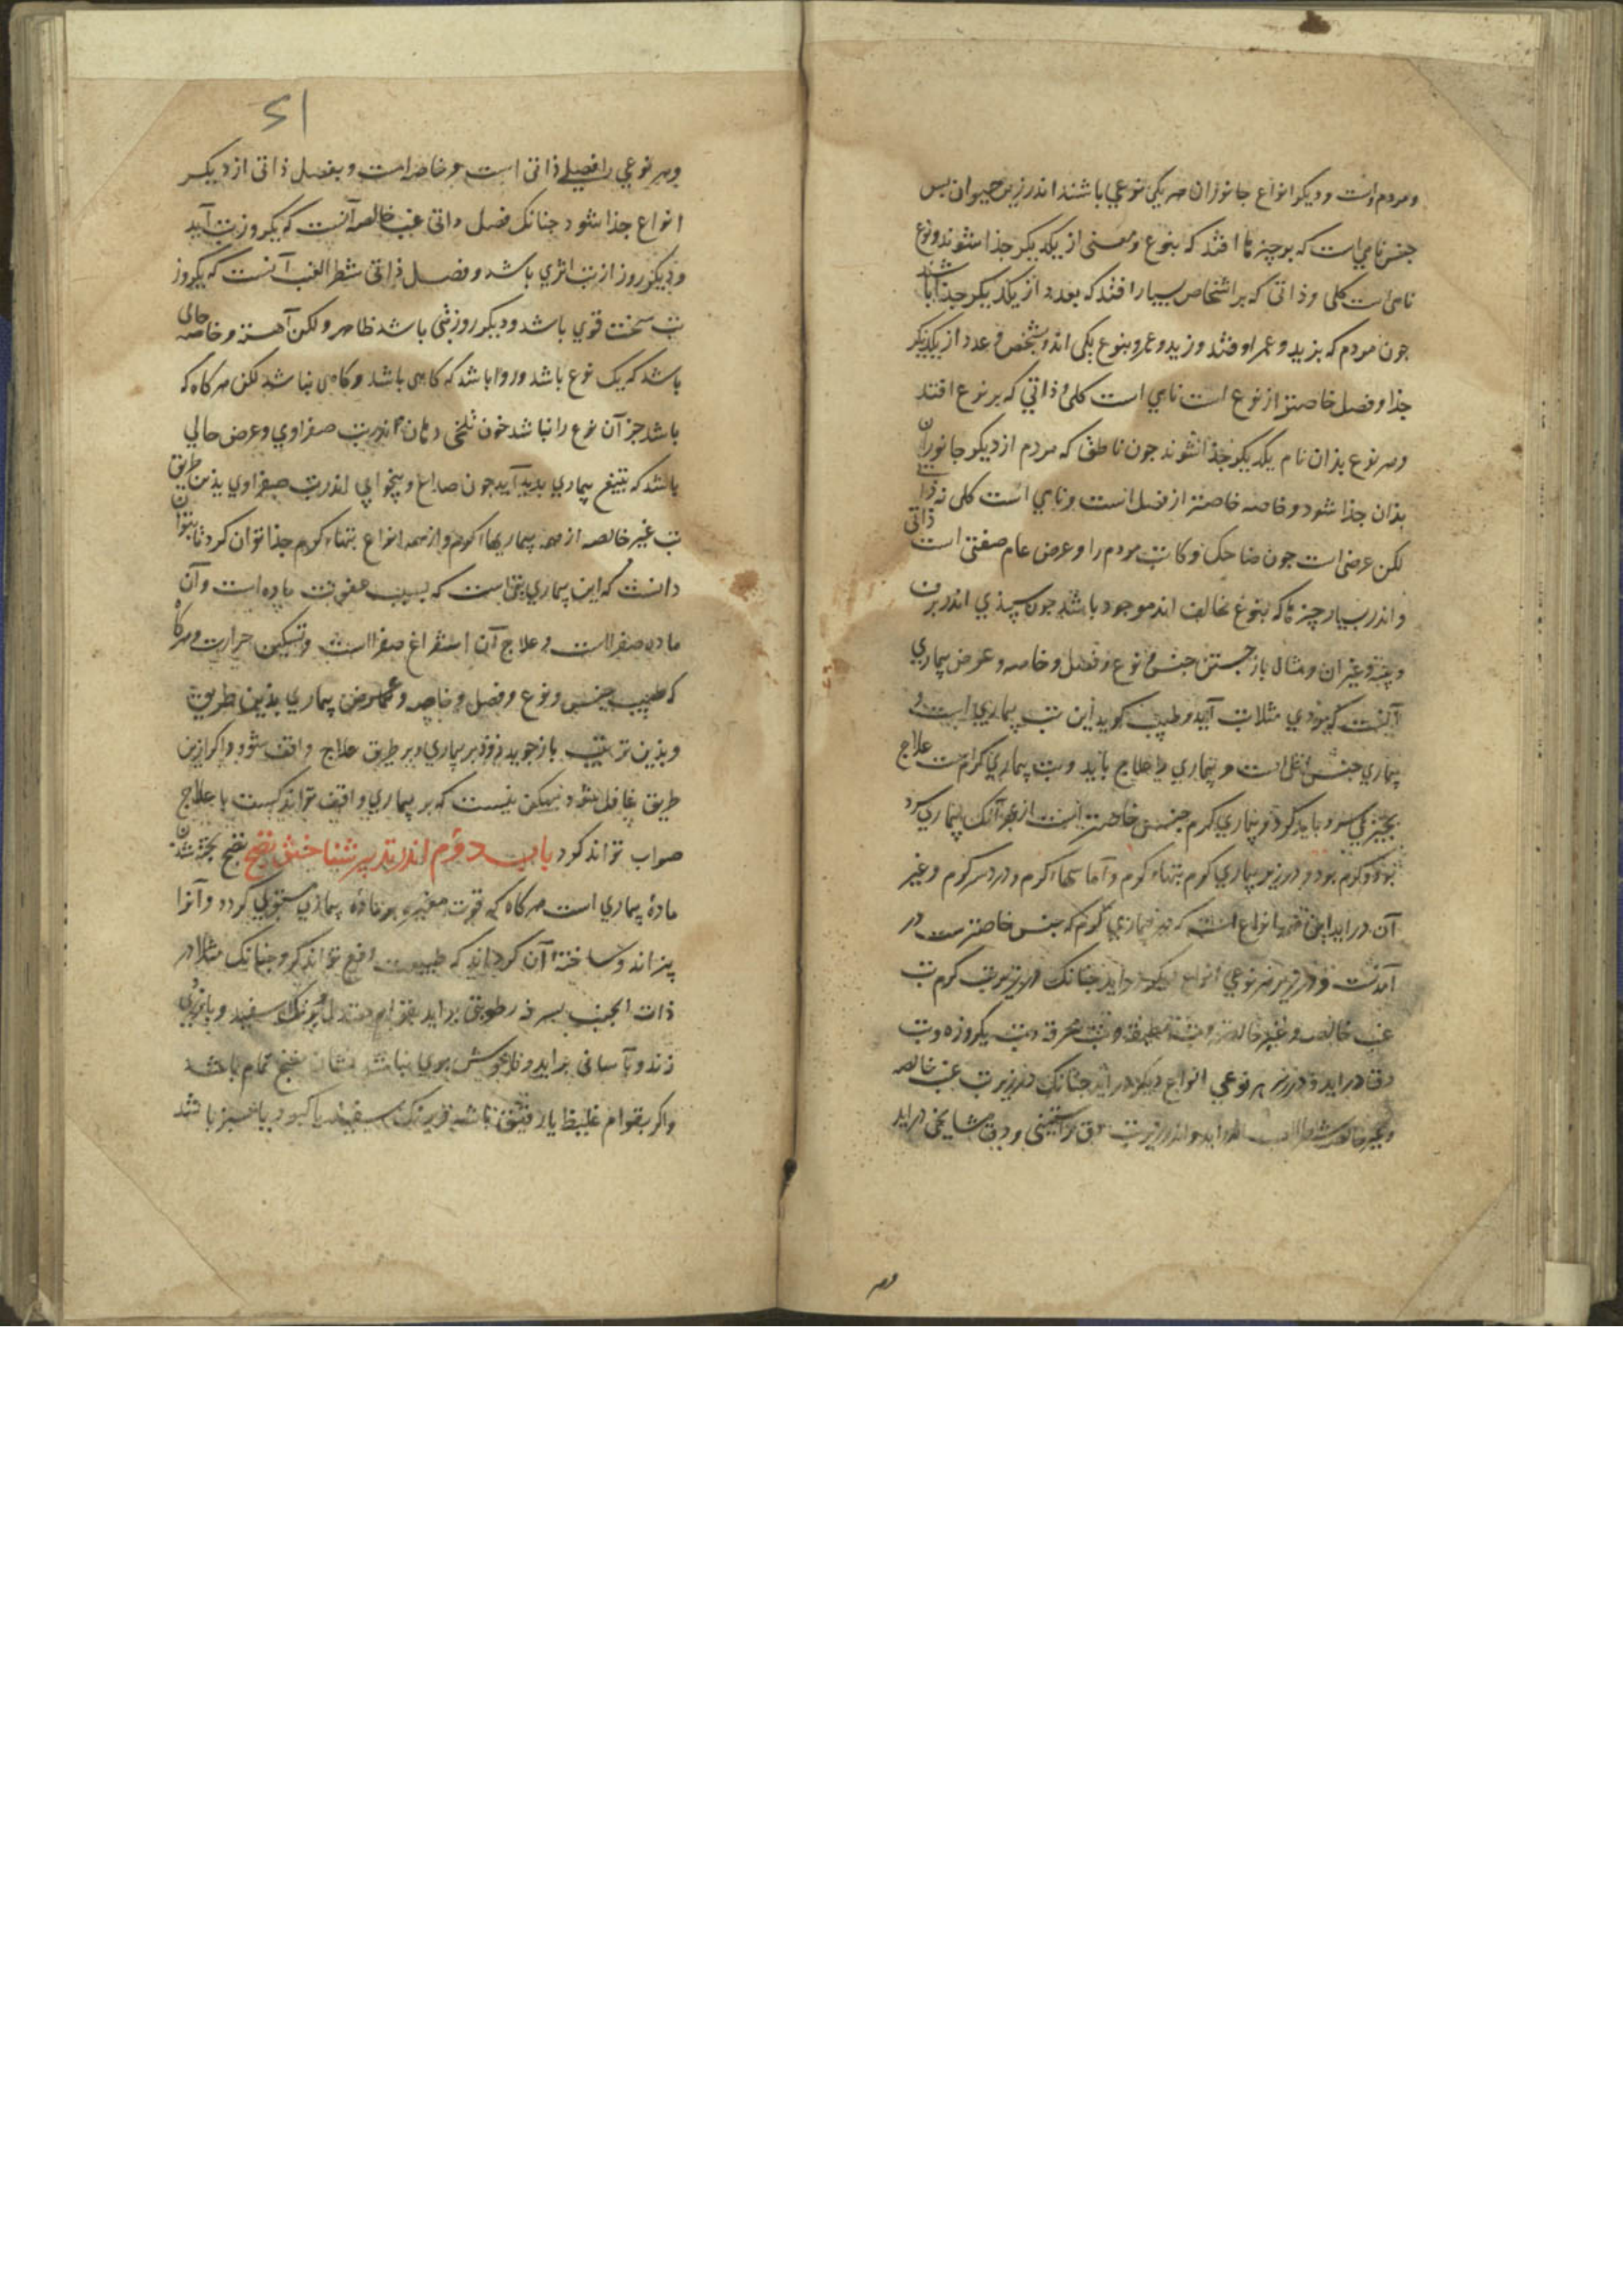 ومردم است و دیکر انواع جانوران هر یکی نوعی باشند اندر زیر حیوان بس
جنس نامی است که بر چیزها افتد که بنوع و معنی از یکدیکر جذا شوند و نوع
نامی است کلی و ذاتی که بر اشخاص بسیار افتد که بعدد از یکدیکر جذا باشند
جون مردم که بزید و عمرو افتد و زید و عمرو بنوع یکی اند و بشخص و عدد از یکدیکر
جذا و فصل خاصتر از نوع است نامی است کلی و ذاتی که بر نوع افتد
و هر نوع بذان نام یکدیکر جذا شوند جون ناطق که مردم از دیکر جانوران
بذان جذا شود و خاصه خاصتر از فصل است و نامی است کلی نه ذاتی
لکن عرضی است جون ضاحک و کاتب مردم را و عرض عام صفتی است
و اندر بسیار چیزها که بنوع مخالف اند موجود باشد جون سپیذی اندر برف
و پنبه و غیر آن و مثال باز جستن جنس و نوع و فصل و خاصه و عرض بیماری
آنست که مردی مثلا تب آید و طبیب کوید این تب بیماری است و
بیماری جنس اعلی است و بیماری را علاج باید و تب بیماری کرم است علاج
بچیزی سرد باید کرد و بیماری کرم جنس خاصتر است از بهر آنک بیماری سرد
بوذ و کرم بوذ و در زیر بیماری کرم تبهاء کرم و آماسهاء کرم و درد سر کرم و غیر
آن در آید این همه انواع است که زیر بیماری کرم که جنس خاصتر ست در
آمدست و در زیر هر نوعی انواع دیکر در آید جنانک در زیر تب کرم تب
غب خالصه و غیر خالصه و تب مطبقه و تب محرقه و تب یکروزه و تب
دق در آید و در زیر هر نوعی انواع دیکر در آید جنانک در زیر تب غب خالصه
و غیر خالصه شطر الغب در آید و اندر زیر تب دق و دق مشایخی در آید
وهر
21
وهر نوعی را فصلی ذاتی است و خاصه است و بفصل ذاتی از دیکر
انواع جذا شود جنانک فصل ذاتی غب خالصه آنست که یکروز تب آید
و دیکر روز از تب اثری باشد و فصل ذاتی شطر الغب آنست که یکروز
تب سخت قوی باشد و دیکر روز تبی باشد ظاهر و لکن آهسته و خاصه حالی
باشد که یک نوع باشد و روا باشد که کاهی باشد و کاهی نباشد لکن هر کاه که
باشد جز آن نوع را نباشد خون تلخی دهان اندر تب صفراوی و عرض حالی
باشد که بتبع بیماری بدید آید جون صداع و بیخوابی اندر تب صفراوی بذین طریق
تب غیر خالصه از همه بیماریهاء کرم و از همه انواع تبهاء کرم جذا توان کرد تا بتوان
دانست که این بیماری تبی است که بسبب عفونت ماده است و آن
ماده صفراست و علاج آن استفراغ صفراست و تسکین حرارت و هر کاه
که طبیب جنس و نوع و فصل و خاصه و عرض بیماری بذین طریق
و بذین ترتیب باز جوید زوذ بر بیماری و بر طریق علاج واقف شود و اکر ازین
طریق غافل شود ممکن نیست که بر بیماری واقف تواند کشت یا علاج
صواب تواند کرد باب دوم اندر تدبیر شناختن نضج نضج پخته شدن
مادهٔ بیماری است هر کاه که قوت مغیره بر مادهٔ بیماری مستولی کردد و آنرا
بپزاند و ساخته آن کرداند که طبیعت دفع تواند کرد جنانک مثلا در
ذات الجنب بسرفه رطوبتی براید بقوام معتدل و برنک سفید و
زند و بآسانی براید و ناخوش بوی نباشد نشان نضج تمام باشد
و اکر بقوام غلیظ یا رقیق باشد و برنک سفید یا کبود یا سبز باشد